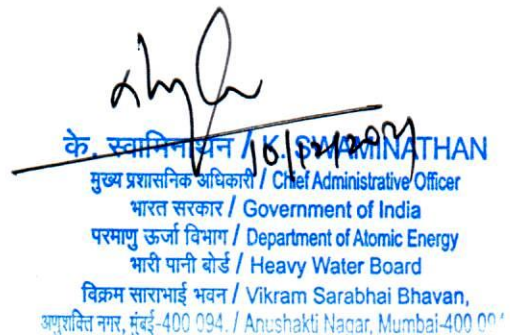 के. स्वामिनाथन / K. SWAMINATHAN
मुख्य प्रशासनिक अधिकारी / Chief Administrative Officer
भारत सरकार / Government of India
परमाणु ऊर्जा विभाग / Department of Atomic Energy
भारी पानी बोर्ड / Heavy Water Board
विक्रम साराभाई भवन / Vikram Sarabhai Bhavan,
अणुशक्ति नगर, मुंबई-400 094. / Anushakti Nagar, Mumbai-400 09